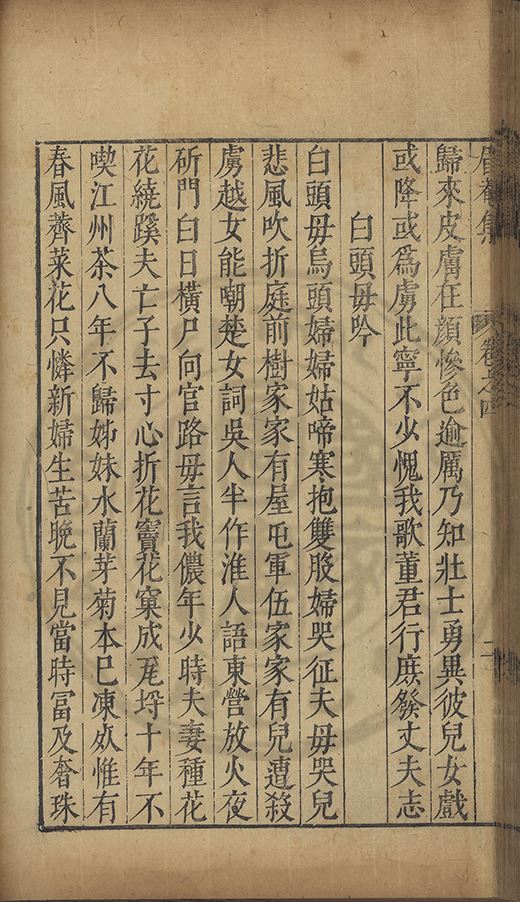 眉菴集 卷之四
歸來皮膚在顔慘色逾厲乃知壯士勇異彼兒女戲
或降或爲虜此寧不少愧我歌董君行庶發丈夫志
白頭毋吟
白頭毋烏頭婦婦姑啼寒抱雙股婦哭征夫毋哭兒
悲風吹折庭前樹家家有屋屯軍伍家家有兒遭殺
虜越女能嘲楚女詞吳人半作淮人語東營放火夜
斫門白日橫尸向官路毋言我儂年少時夫妻種花
花繞蹊夫亡子去寸心折花竇花窠成瓦埒十年不
喫江州茶八年不歸姊妹水蘭芽菊本已凍死惟有
春風薺菜花只憐新婦生苦晚不見當時冨及奢珠